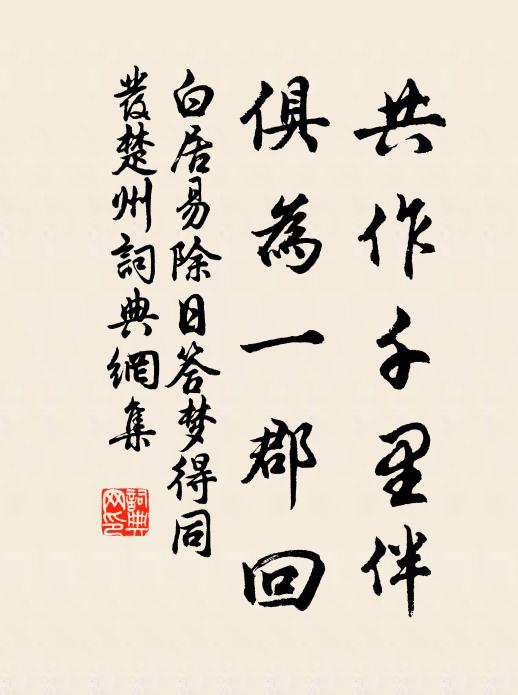 共作千里伴
俱為一郡回
白居易除日答梦得同
發楚州詞典網集
詞典网印